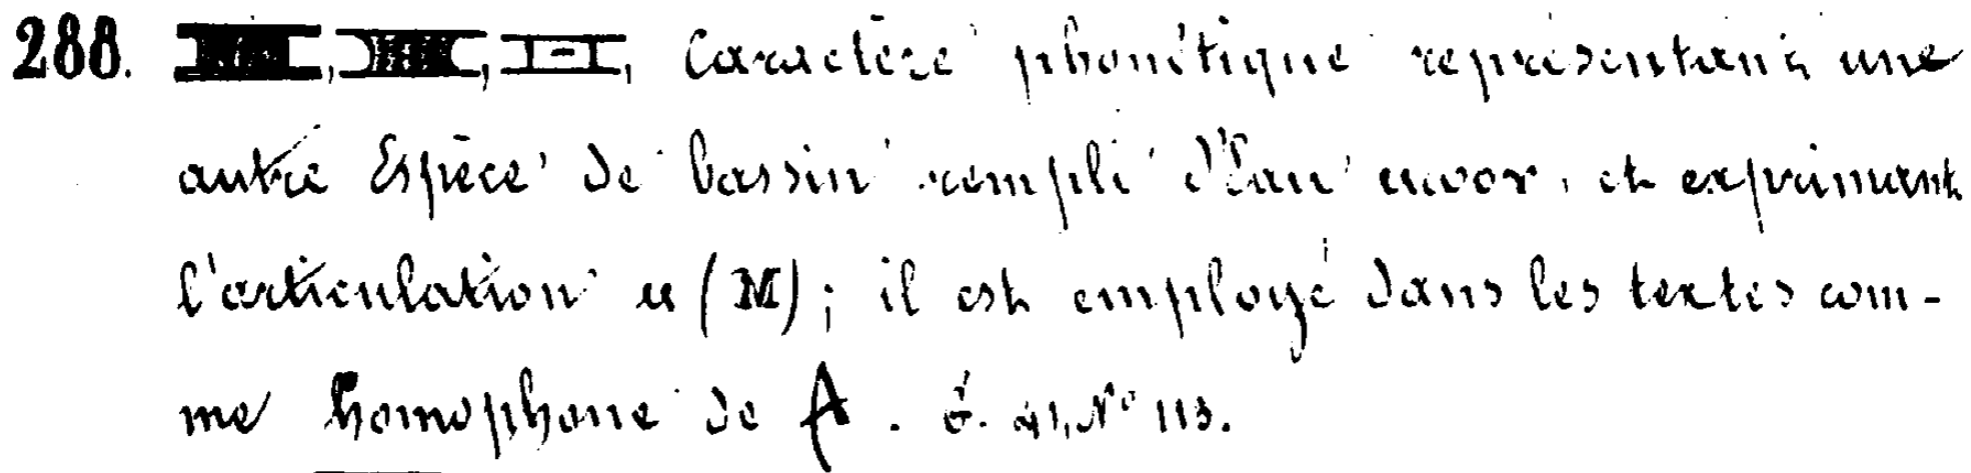 288. , , , Caractère phonétique représentant une
autre Espèce de bassin rempli d'Eau ⲙⲱⲟⲩ, et exprimant
l'articulation ⲙ (M); il est employé dans les textes com-
me homophone de . G. 41, N° 113.